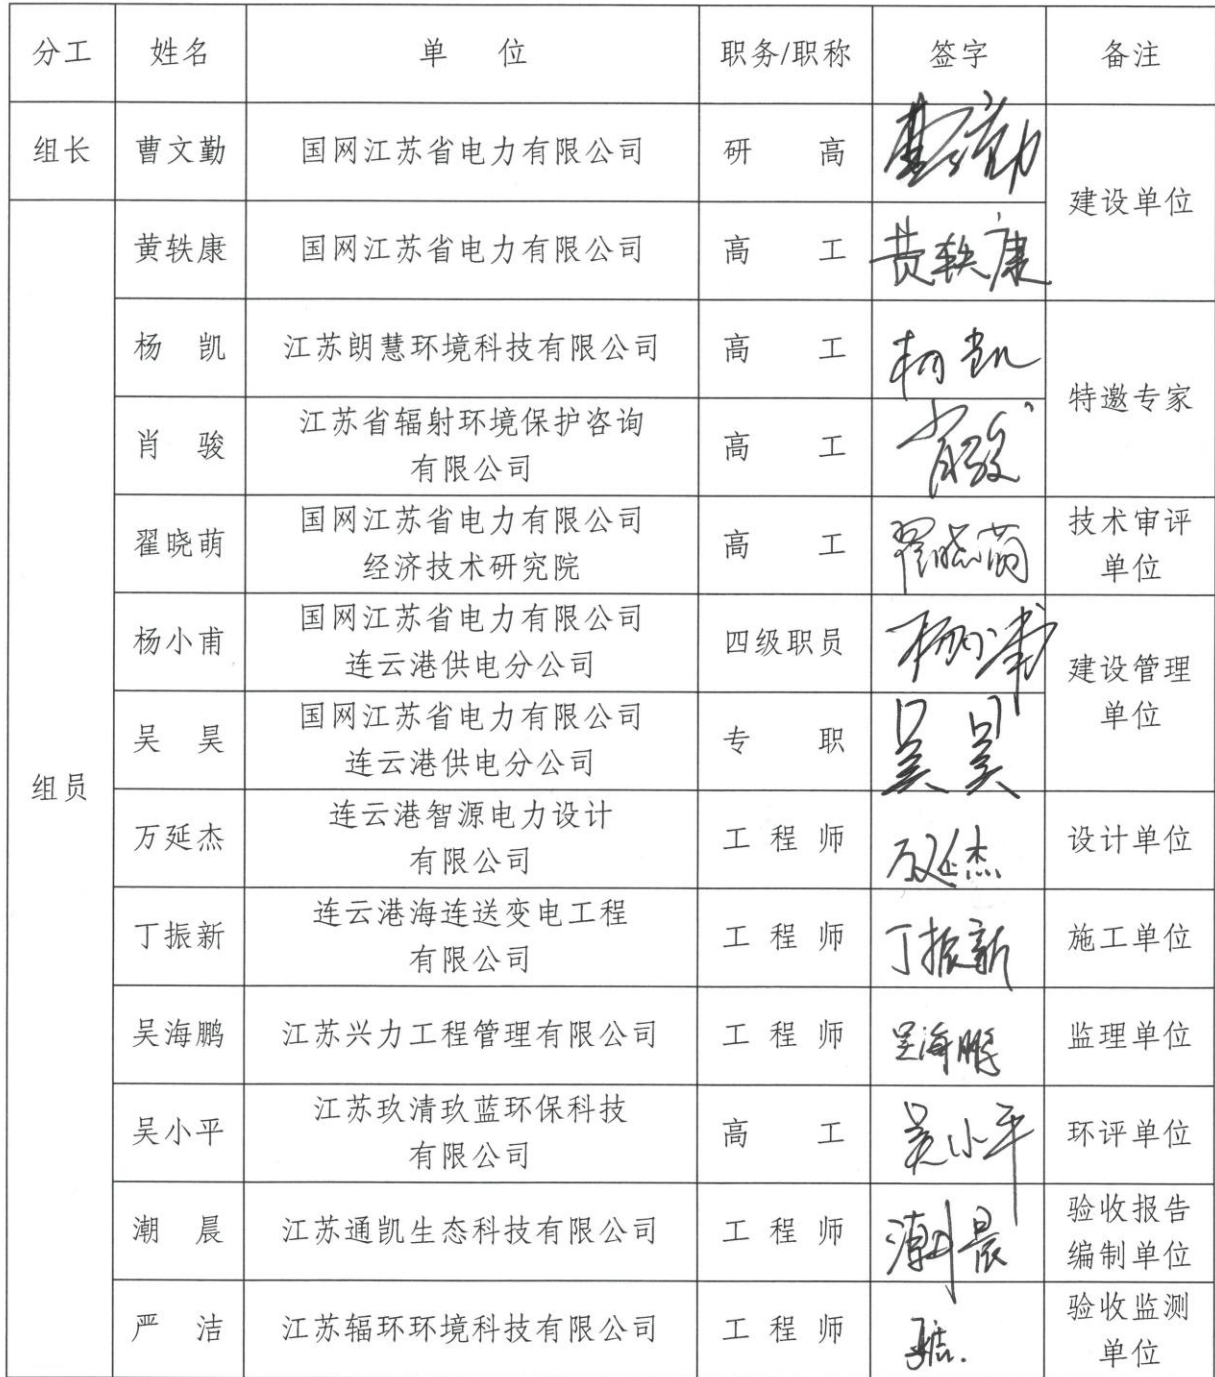 分工 姓名 单 位 职务/职称 签字 备注
组长 曹文勤 国网江苏省电力有限公司 研 高 曹文勤 建设单位
组员 黄轶康 国网江苏省电力有限公司 高 工 黄轶康
杨 凯 江苏朗慧环境科技有限公司 高 工 杨凯 特邀专家
肖 骏 江苏省辐射环境保护咨询
有限公司 高 工 肖骏
翟晓萌 国网江苏省电力有限公司
经济技术研究院 高 工 翟晓萌 技术审评
单位
杨小甫 国网江苏省电力有限公司
连云港供电分公司 四级职员 杨小甫 建设管理
单位
吴 昊 国网江苏省电力有限公司
连云港供电分公司 专 职 吴昊
万延杰 连云港智源电力设计
有限公司 工 程 师 万延杰 设计单位
丁振新 连云港海连送变电工程
有限公司 工 程 师 丁振新 施工单位
吴海鹏 江苏兴力工程管理有限公司 工 程 师 吴海鹏 监理单位
吴小平 江苏玖清玖蓝环保科技
有限公司 高 工 吴小平 环评单位
潮 晨 江苏通凯生态科技有限公司 工 程 师 潮晨 验收报告
编制单位
严 洁 江苏辐环环境科技有限公司 工 程 师 严洁 验收监测
单位